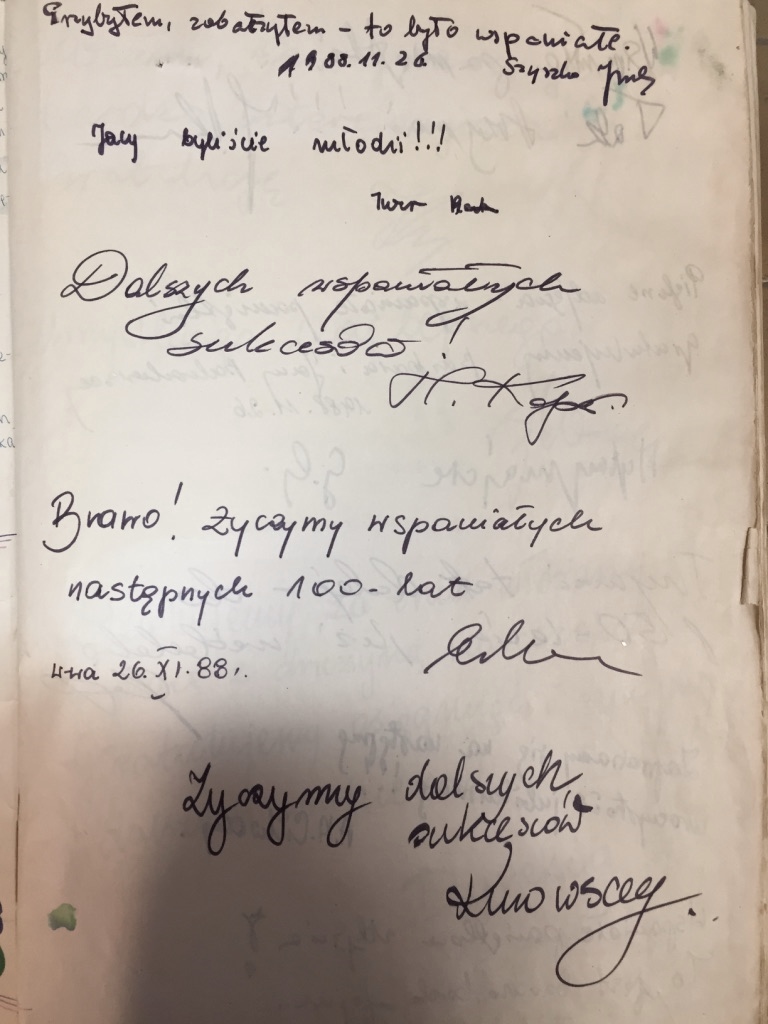 Przybyłem, zobaczyłem - to było wspaniałe.
1988.11.26 Szyszko
Jacy byliście młodzi!!!
Dalszych wspaniałych
sukcesów!
H.
Brawo! Życzymy wspaniałych
następnych 100-lat
W-wa 26.XI.88r.
Życzymy dalszych
sukcesów